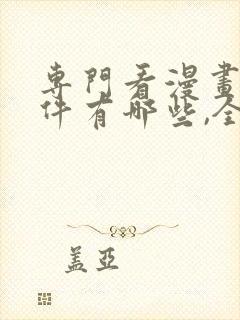 專門看漫畫
件有哪些,全
蓋亞